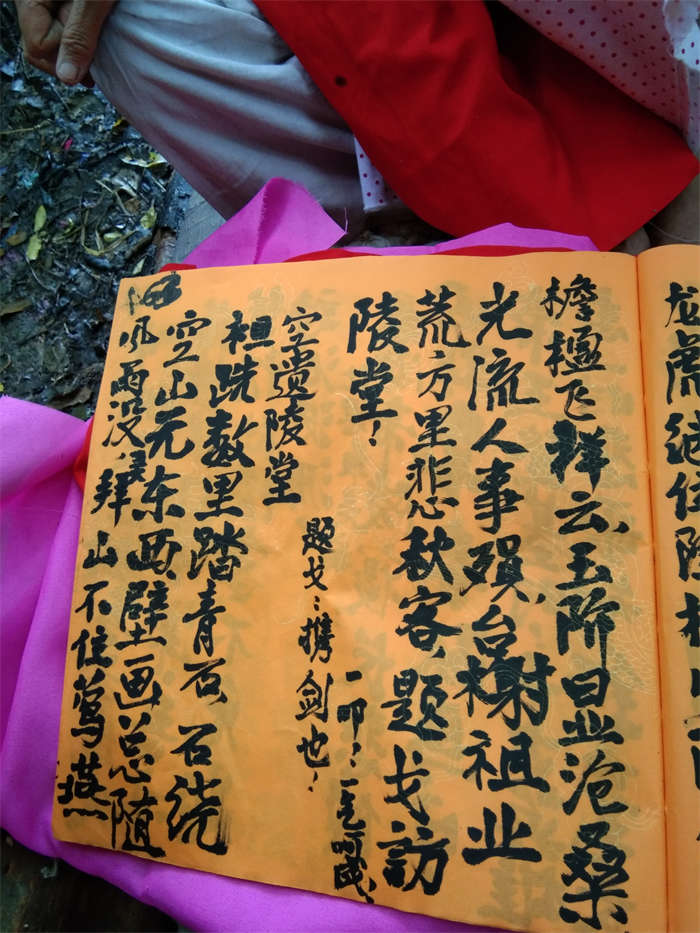 檐楹飞祥云、玉阶显沧桑
光流人事殒、台榭祖业
荒方里悲秋客、题戈訪
陵堂！
一叩！一气呵成、
题戈：携剑也！
空遗陵堂
祖跣数里踏青石、石绕
空山元东西、壁画总随
风雨没、拜山不住莺燕